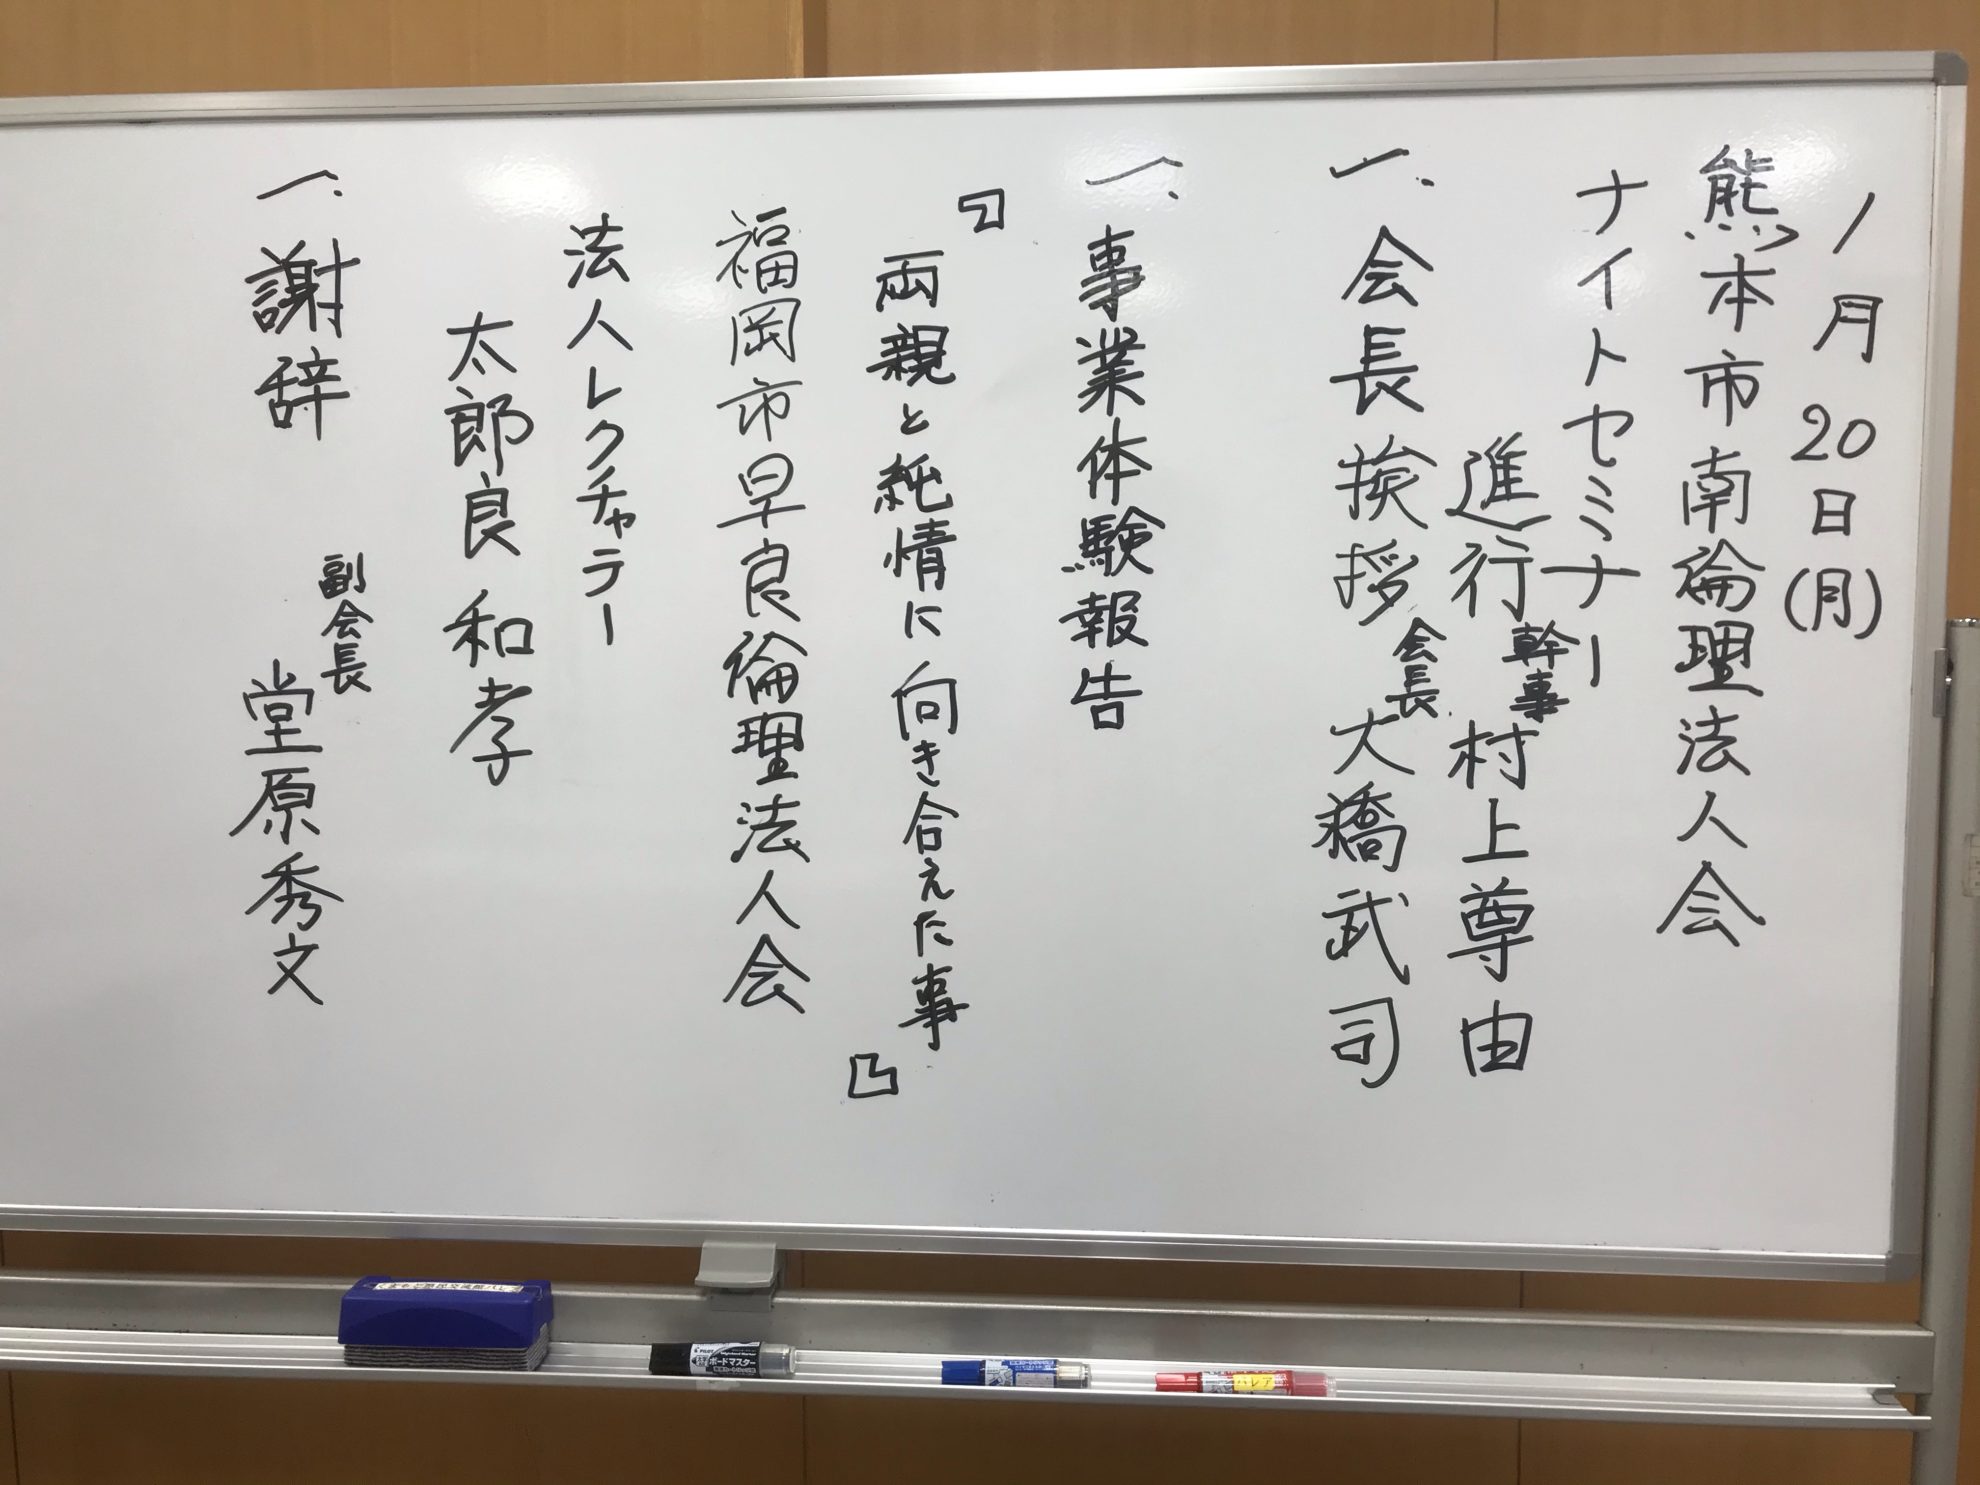 1月20日(月)
熊本市南倫理法人会
ナイトセミナー
進行 幹事 村上尊由
一、会長挨拶 会長 大橋武司
一、事業体験報告
『両親と純情に向き合えた事』
福岡市早良倫理法人会
法人レクチャラー
太郎良和孝
一、謝辞 副会長 堂原秀文
PILOT
ボードマスター
パレア